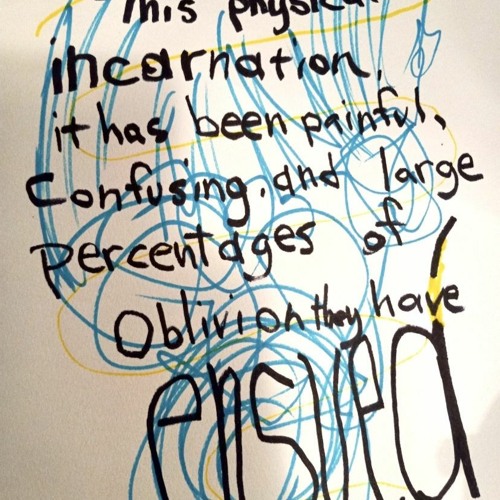 This physical
incarnation,
it has been painful,
Confusing. and large
percentages of
Oblivion they have
ensued